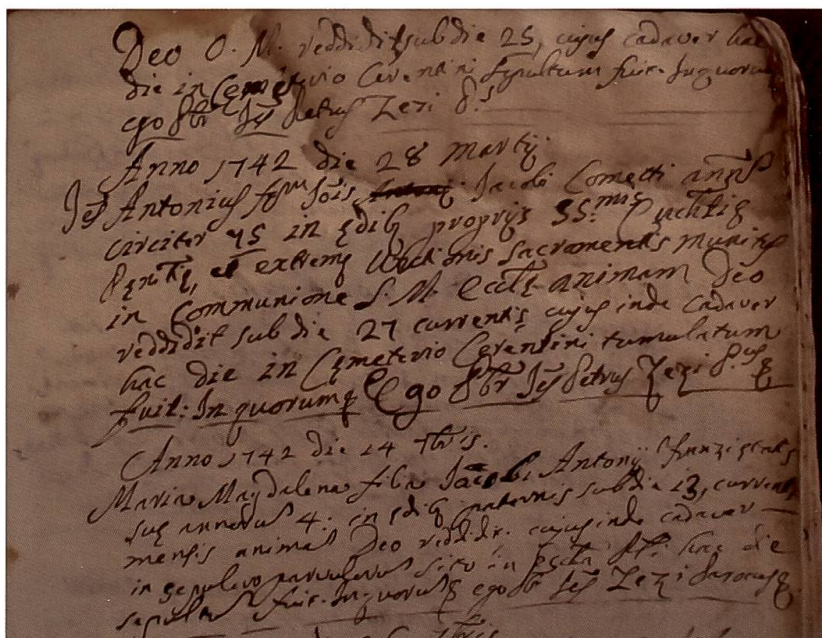 Deo O. M. reddidit sub die 25, cujus cadaver hac
die in Cemeterio Cerentini sepultum fuit. In quorum
ego Pbr Jos Petrus Zezi P.s
Anno 1742 die 28 Martij.
Jos Antonius fil Jois Jacobi Cometti annos
circiter 75 in ędib proprijs SS.mis Euchtię
Pęnitę, et extremę Unctionis Sacramentis munitus
in Communione S. M. Ecclę animam Deo
reddidit sub die 27 currentis cujus inde cadaver
hac die in Cęmeterio Cerentini tumulatum
fuit: In quorumq Ego Pbr Jos Petrus Zezi P.us
Anno 1742 die 14 7bris.
Maria Magdalena filia Jacobi Antonij ętatis
suę annorum 4: in ędib paternis sub die 13, currentis
mensis animam Deo reddidit. cujus inde cadaver
in sepulcro parvulorum sito in hac die
sepultum fuit. In quorum ego Pbr Jos Zezi Parochus